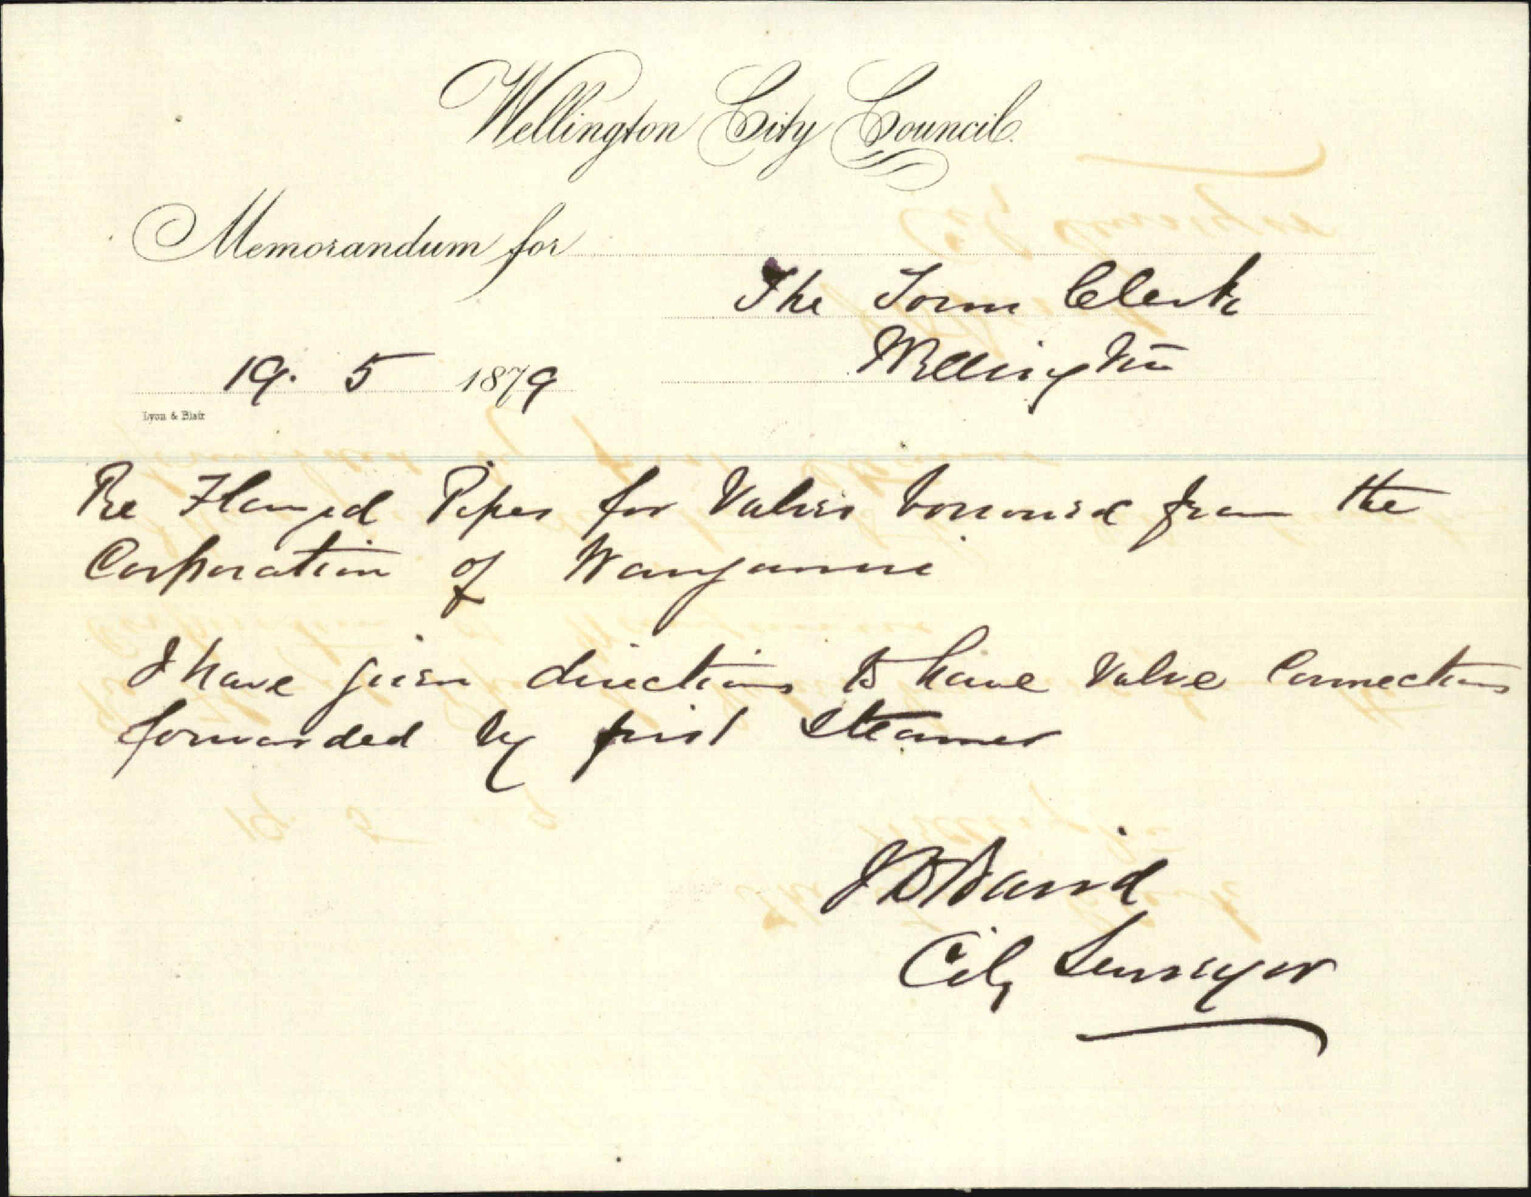 Wellington City Council.
Memorandum for
The Town Clerk
Wellington
19. 5 1879
Lyon & Blair
Re Flanged Pipes for Valves borrowed from the
Corporation of Wanganui
I have given directions to have Valve Connections
forwarded by first Steamer
J D Baird
City Surveyor